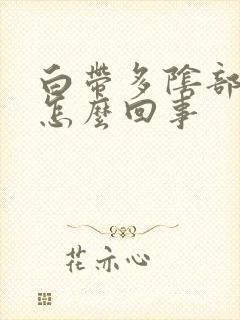 白帶多陰部
怎麼回事
花亦心